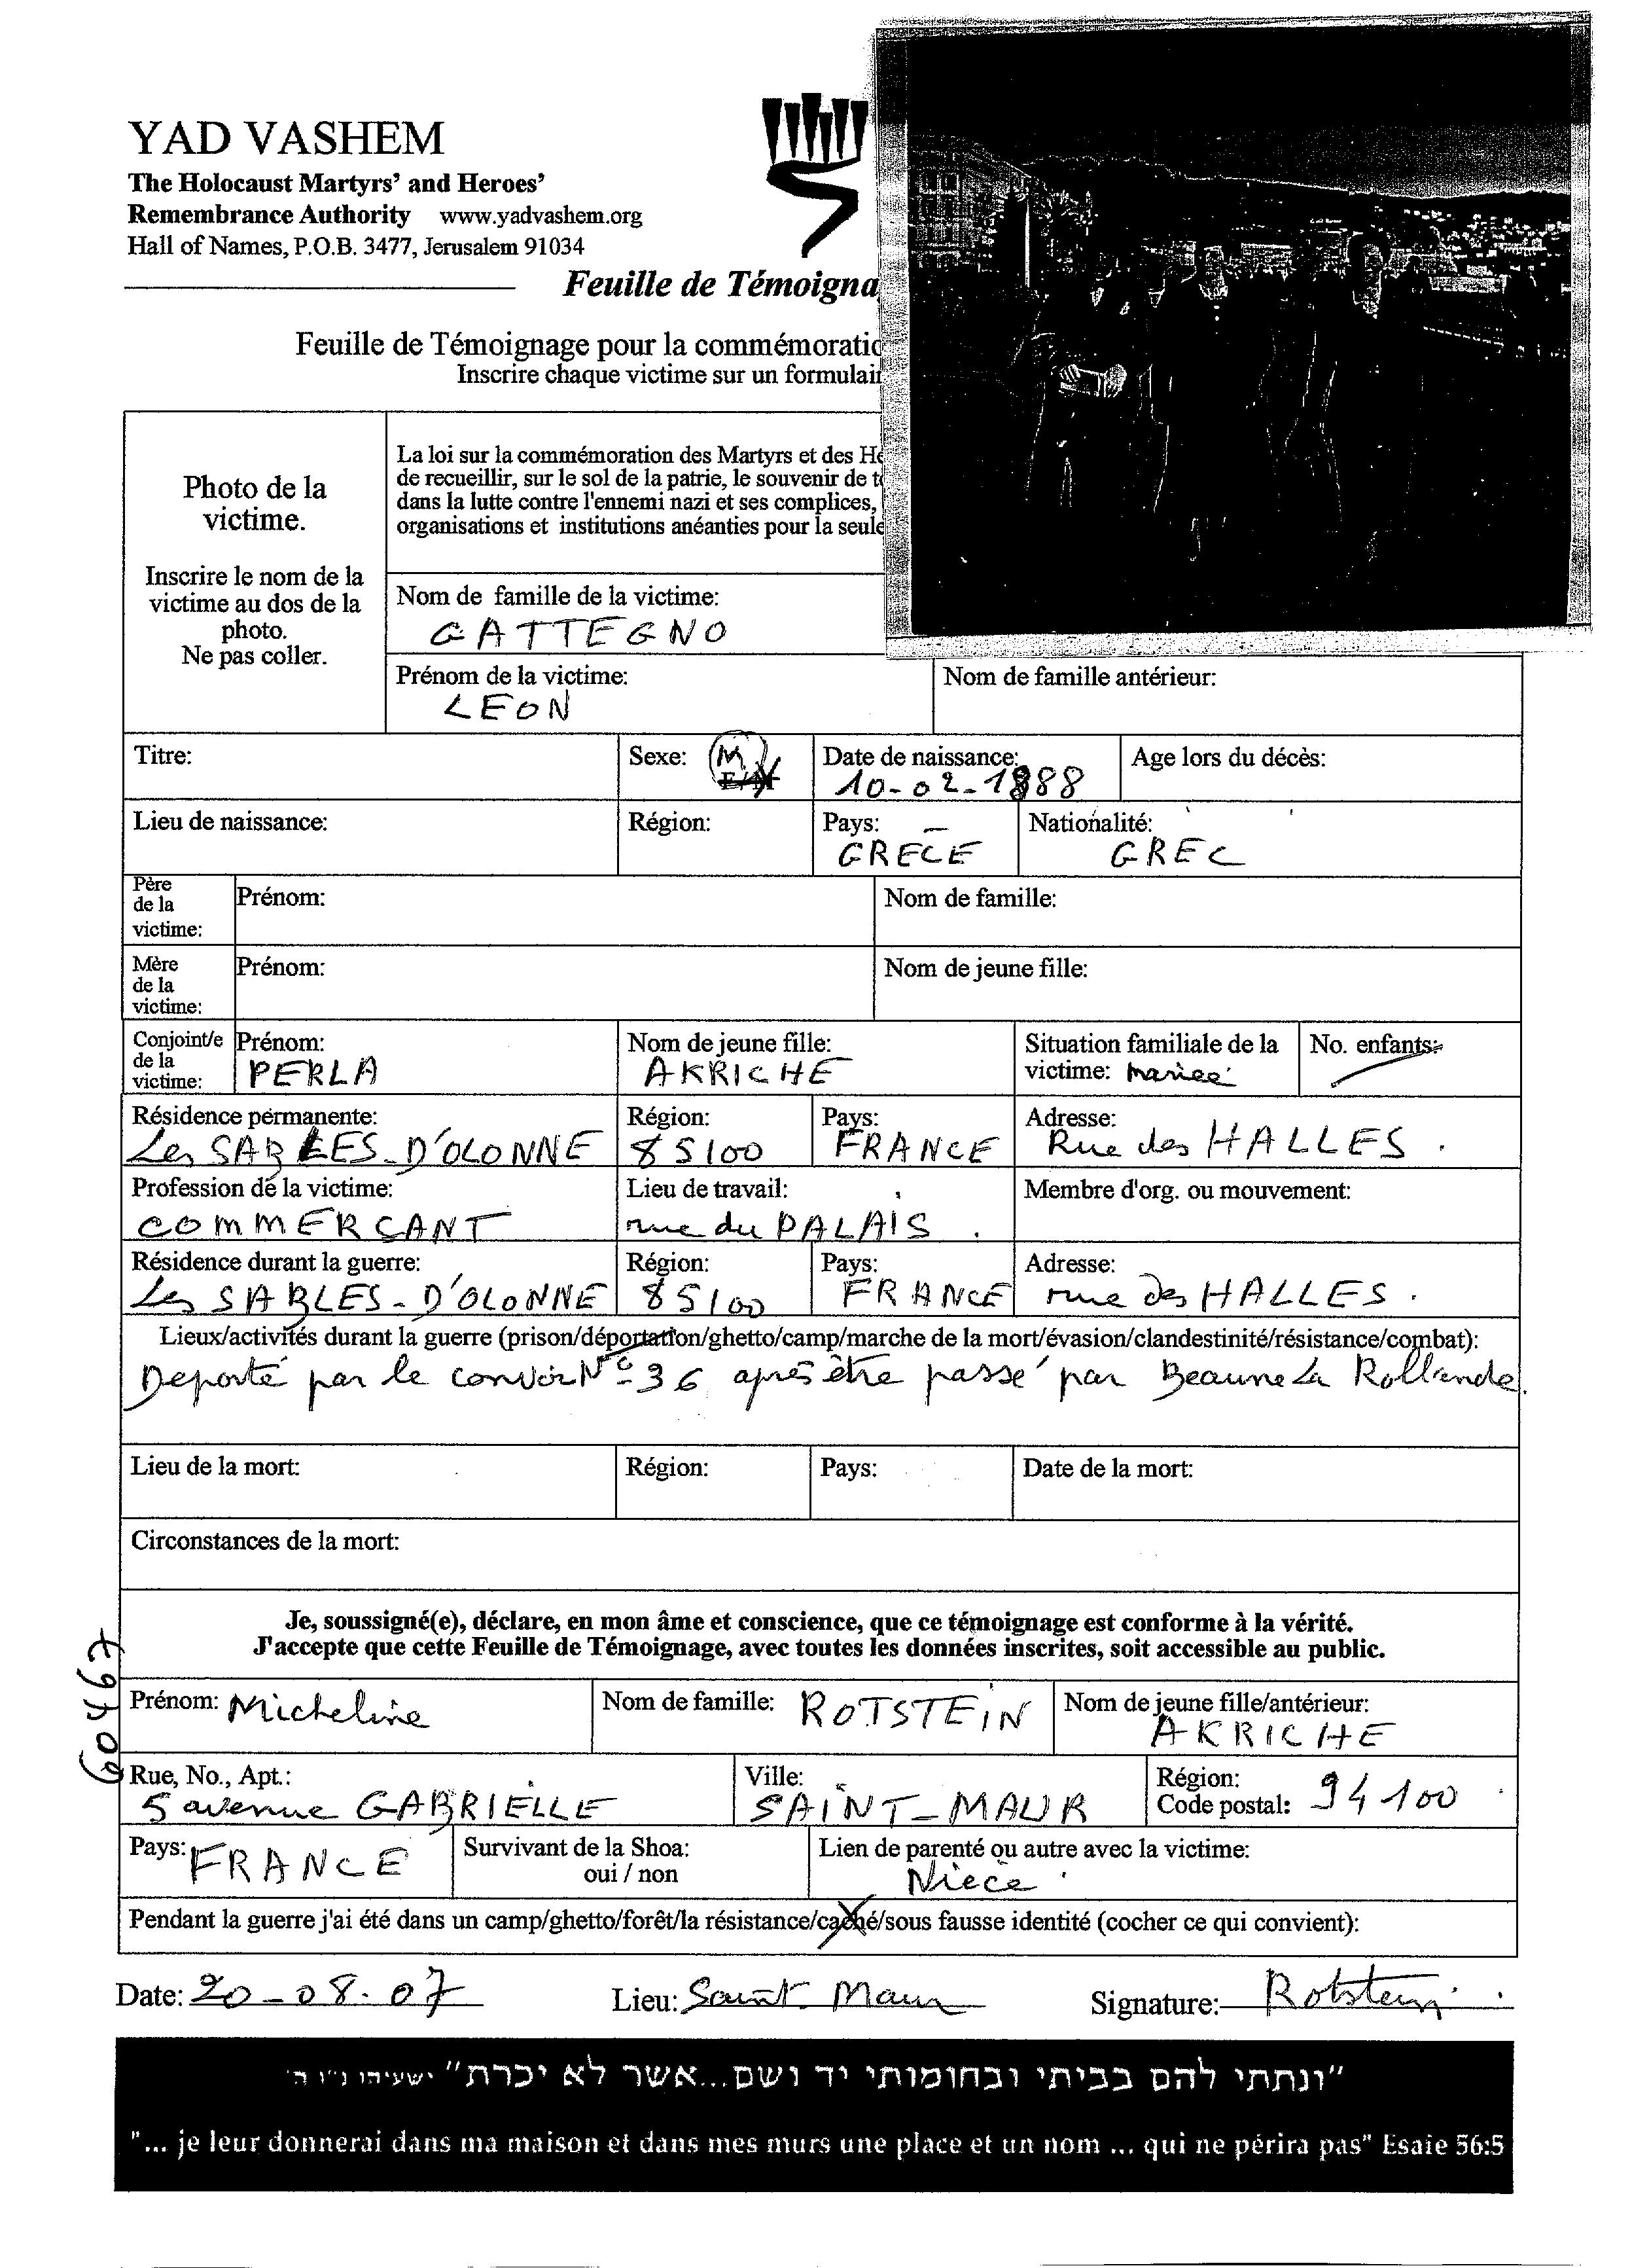 YAD VASHEM
The Holocaust Martyrs' and Heroes'
Remembrance Authority www.yadvashem.org
Hall of Names, P.O.B. 3477, Jerusalem 91034
Feuille de Témoigna
Feuille de Témoignage pour la commémoratio
Inscrire chaque victime sur un formulair
Photo de la
victime.
Inscrire le nom de la
victime au dos de la
photo.
Ne pas coller.
La loi sur la commémoration des Martyrs et des Hé
de recueillir, sur le sol de la patrie, le souvenir de to
dans la lutte contre l'ennemi nazi et ses complices,
organisations et institutions anéanties pour la seule
Nom de famille de la victime:
GATTEGNO
Prénom de la victime:
LEON
Nom de famille antérieur:
Titre:
Sexe: M
Date de naissance:
10-02-1888
Age lors du décès:
Lieu de naissance:
Région:
Pays:
GRECE
Nationalité:
GREC
Père
de la
victime:
Prénom:
Nom de famille:
Mère
de la
victime:
Prénom:
Nom de jeune fille:
Conjoint/e
de la
victime:
Prénom:
PERLA
Nom de jeune fille:
AKRICHE
Situation familiale de la
victime: mariée
No. enfants:
Résidence permanente:
Les SABLES-D'OLONNE
Région:
85100
Pays:
FRANCE
Adresse:
Rue des HALLES.
Profession de la victime:
COMMERCANT
Lieu de travail:
rue du PALAIS.
Membre d'org. ou mouvement:
Résidence durant la guerre:
Les SABLES-D'OLONNE
Région:
85100
Pays:
FRANCE
Adresse:
rue des HALLES.
Lieux/activités durant la guerre (prison/déportation/ghetto/camp/marche de la mort/évasion/clandestinité/résistance/combat):
Deporté par le convoi N° 36 après être passé par Beaune La Rollande.
Lieu de la mort:
Région:
Pays:
Date de la mort:
Circonstances de la mort:
Je, soussigné(e), déclare, en mon âme et conscience, que ce témoignage est conforme à la vérité.
J'accepte que cette Feuille de Témoignage, avec toutes les données inscrites, soit accessible au public.
Prénom: Micheline
Nom de famille: ROTSTEIN
Nom de jeune fille/antérieur:
AKRICHE
Rue, No., Apt.:
5 avenue GABRIELLE
Ville:
SAINT-MAUR
Région:
Code postal: 94100
Pays: FRANCE
Survivant de la Shoa:
oui / non
Lien de parenté ou autre avec la victime:
Nièce
Pendant la guerre j'ai été dans un camp/ghetto/forêt/la résistance/caché/sous fausse identité (cocher ce qui convient):
Date: 20-08-07
Lieu: Saint Maur
Signature: Rotstein
"ונתתי להם בביתי ובחומותי יד ושם...אשר לא יכרת" ישעיהו נ"ו ה'
"... je leur donnerai dans ma maison et dans mes murs une place et un nom ... qui ne périra pas" Esaie 56:5